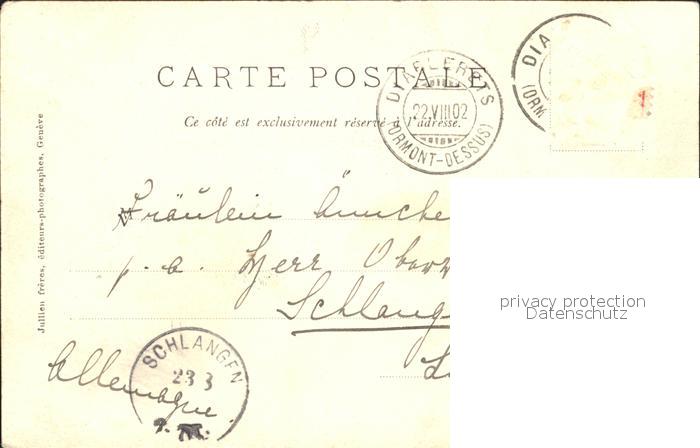 CARTE POSTALE
Ce côté est exclusivement réservé à l'adresse.
DIABLERETS
22.VIII.02
(ORMONT-DESSUS)
DIA
(ORM
Jullien frères, éditeurs-photographes, Genève
Fräulein
p. a. Herr
Schlang
Allemagne.
SCHLANGEN
23 8
privacy protection
Datenschutz